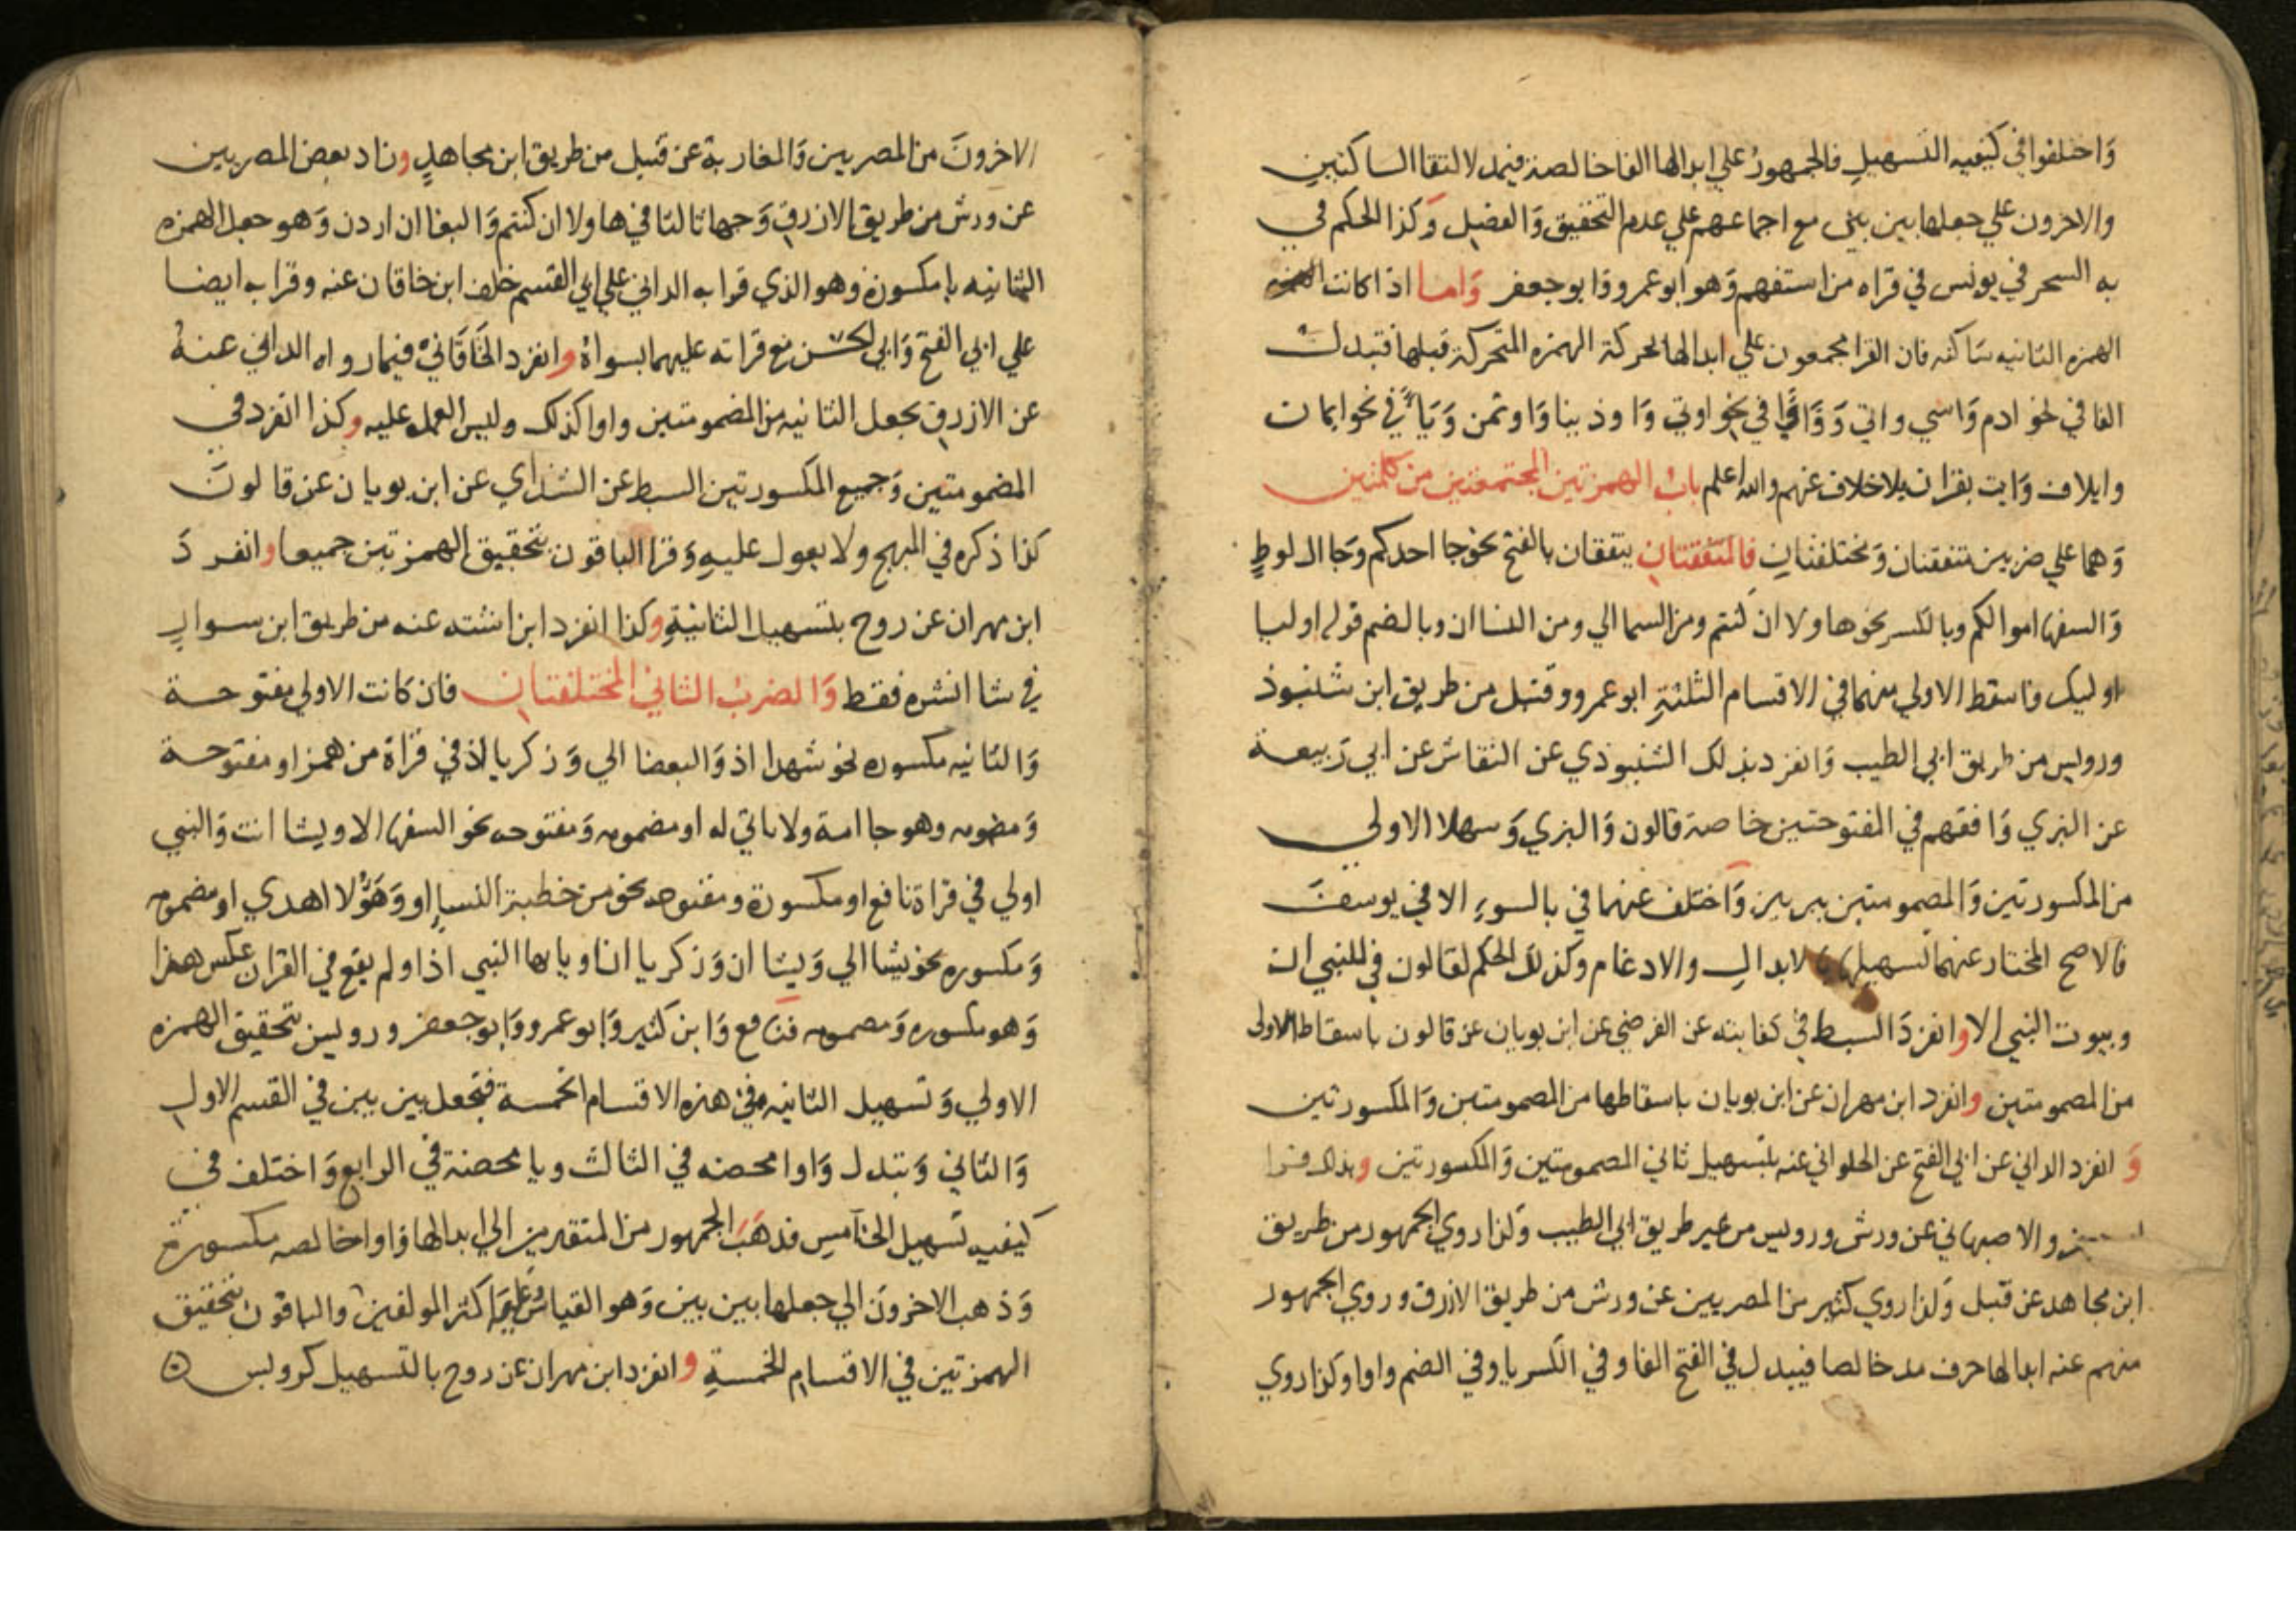 واختلفوا في كيفيه التسهيل فالجمهور علي ابدالها الفا خالصة فيمد لالتقا الساكنين
والاخرون علي جعلها بين بين مع اجماعهم علي عدم التحقيق والفضل وكذا الحكم في
به السحر في يونس في قراه من استفهم وهو ابو عمرو وابو جعفر واما اذا كانت
الهمزه الثانيه ساكنه فان القرا مجمعون علي ابدالها لحركة الهمزه المتحركة قبلها فتبدل
الفا في نحو ادم واسي واتي وواوا في نحو اوتي واوذينا واوتمن وياء في نحو ايمان
وايلاف وايت بقران بلا خلاف عنهم والله اعلم باب الهمزتين المجتمعتين من كلمتين
وهما علي ضربين متفقتان ومختلفتان فالمتفقتان يتفقان بالفتح نحو جا احدكم وجا ال لوط
والسفها اموالكم وبالكسر نحو هاولا ان كنتم ومن السما الي ومن النسا ان وبالضم قوله اوليا
اوليك فاسقط الاولي منهما في الاقسام الثلثة ابو عمرو وقنبل من طريق ابن شنبوذ
ورويس من طريق ابي الطيب وانفرد بذلك الشنبوذي عن النقاش عن ابي ربيعة
عن البزي وافقهم في المفتوحتين خاصة قالون والبزي وسهلا الاولي
من المكسورتين والمضمومتين بين بين واختلف عنهما في بالسوء الا في يوسف
فالاصح المختار عنهما تسهيلها بالابدال والادغام وكذلك الحكم لقالون في للنبي ان
وبيوت النبي الا وانفرد السبط في كفايته عن الفرضي عن ابن بويان عن قالون باسقاط الاولي
من المضمومتين وانفرد ابن مهران عن ابن بويان باسقاطها من المضمومتين والمكسورتين
وانفرد الداني عن ابي الفتح عن الحلواني عنه بتسهيل ثاني المضمومتين والمكسورتين وبذلك قرا
والاصبهاني عن ورش ورويس من غير طريق ابي الطيب وكذا روي الجمهور من طريق
ابن مجاهد عن قنبل وكذا روي كثير من المصريين عن ورش من طريق الازرق وروي الجمهور
منهم عنه ابدالها حرف مد خالصا فيبدل في الفتح الفا وفي الكسر يا وفي الضم واوا وكذا روي
الاخرون من المصريين والمغاربة عن قنبل من طريق ابن مجاهد وزاد بعض المصريين
عن ورش من طريق الازرق وجها ثالثا في هاولا ان كنتم والبغا ان اردن وهو جعل الهمزه
الثانيه يا مكسورة وهو الذي قرا به الداني علي ابي القسم خلف ابن خاقان عنه وقرا به ايضا
علي ابي الفتح وابي الحسن مع قراته عليهما بسواه وانفرد الخاقاني فيما رواه الداني عنه
عن الازرق بجعل الثانيه من المضمومتين واوا كذلك وليس العمل عليه وكذا انفرد في
المضمومتين وجميع المكسورتين السبط عن الشذاي عن ابن بويان عن قالون
كذا ذكره في المبهج ولا يعول عليه وقرا الباقون بتحقيق الهمزتين جميعا وانفرد
ابن مهران عن روح بتسهيل الثانية وكذا انفرد ابن اشته عنه من طريق ابن سوار
في شا انشره فقط والضرب الثاني المختلفتان فان كانت الاولي مفتوحة
والثانيه مكسوره نحو شهدا اذ والبغضا الي وزكريا اذ في قراة من همز او مفتوحة
ومضمومه وهو جا امة ولا ياتي له او مضمومه ومفتوحه نحو السفها الا ويشا انت والنبي
اولي في قراة نافع او مكسورة ومفتوحه نحو من خطبة النساء او وهؤلا اهدي او مضمومه
ومكسوره نحو يشا الي ويشا ان وزكريا انا ويا يها النبي اذا ولم يقع في القران عكس هذا
وهو مكسوره ومضمومه فنافع وابن كثير وابو عمرو وابو جعفر ورويس بتحقيق الهمزه
الاولي وتسهيل الثانيه في هذه الاقسام الخمسة فتجعل بين بين في القسم الاول
والثاني وتبدل واوا محضه في الثالث ويا محضة في الرابع واختلف في
كيفيه تسهيل الخامس فذهب الجمهور من المتقدمين الي ابدالها واوا خالصه مكسورة
وذهب الاخرون الي جعلها بين بين وهو القياس وعليه اكثر المولفين والباقون بتحقيق
الهمزتين في الاقسام الخمسة وانفرد ابن مهران عن روح بالتسهيل كرويس